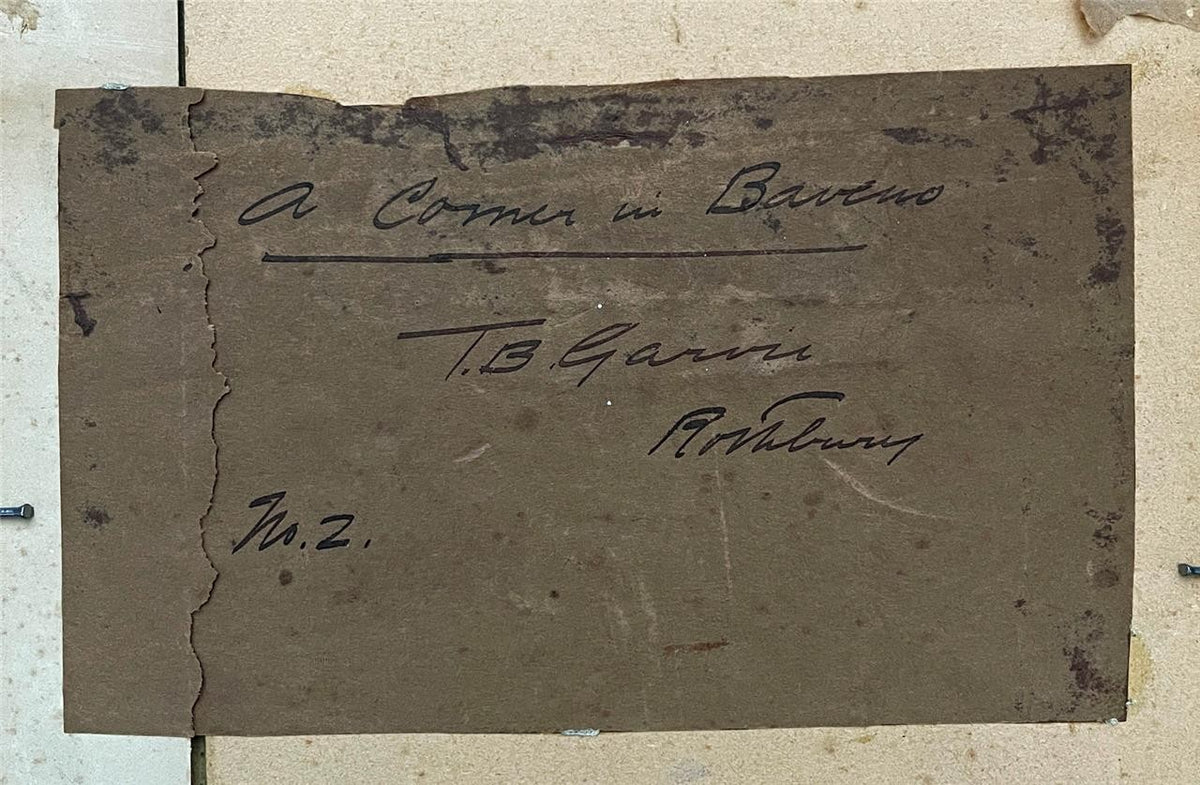 A Corner in Baveno
T.B. Garvie
Rothbury
No. 2.